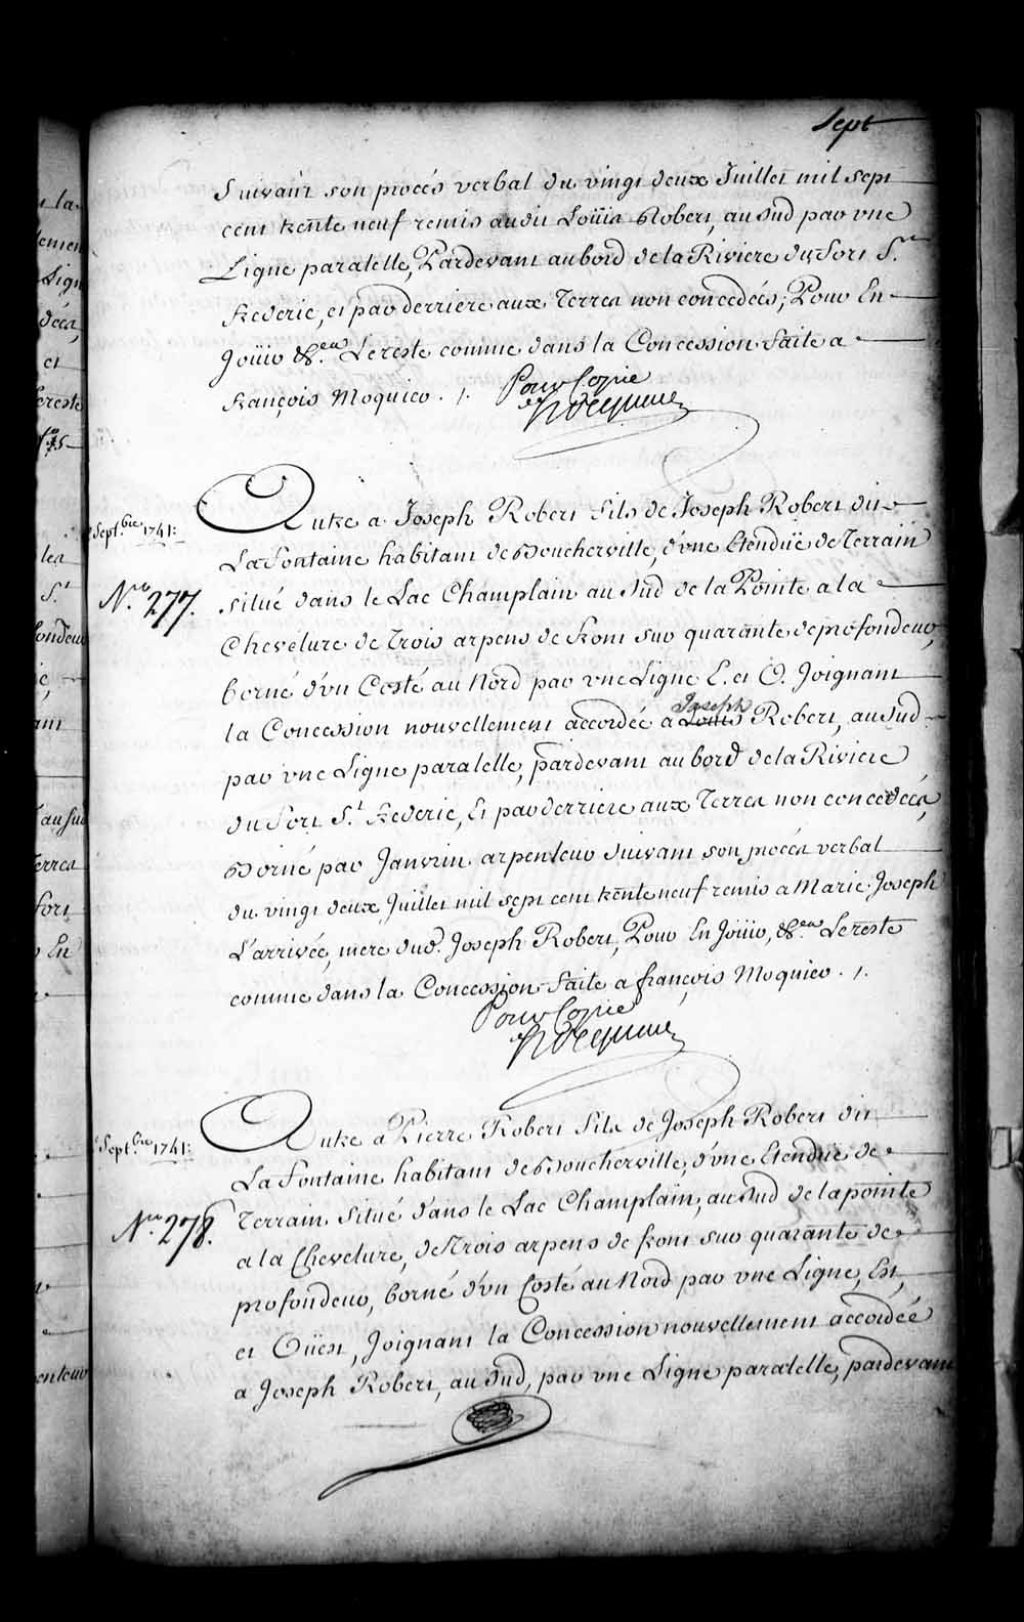 Sept
Suivant son procés verbal du vingt deux Juillet mil sept
cent trente neuf remis audit Loüis Robert, au Sud par une
Ligne paralelle, Pardevant au bord de la Riviere du fort S.t
frederic, et par derriere aux Terres non concedées; Pour En
Joüir &.ca Le reste comme dans la Concession faite a
françois Moquier . /.
Pour Copie
Hocquart
Sept.bre 1741:
N.o 277.
Autre a Joseph Robert fils de Joseph Robert dit
La fontaine habitant de Boucherville, d'une Etendüe de Terrain
situé dans le Lac Champlain au Sud de la Pointe a la
Chevelure de Trois arpens de front sur quarante de profondeur,
borné d'un Costé au Nord par une Ligne E. et O. Joignant
la Concession nouvellement accordée a Louis Joseph Robert, au Sud
par une Ligne paralelle, pardevant au bord de la Riviere
du fort S.t frederic, Et par derriere aux Terres non concedées,
Borné par Janvrin arpenteur Suivant son procés verbal
du vingt deux Juillet mil sept cent trente neuf remis a Marie Joseph
L'arrivée, mere dud. Joseph Robert, Pour En Joüir, &.ca Le reste
comme dans la Concession faite a françois Moquier . /.
Pour Copie
Hocquart
Sept.bre 1741:
N.o 278.
Autre a Pierre Robert fils de Joseph Robert dit
La fontaine habitant de Boucherville, d'une Etendüe de
Terrain situé dans le Lac Champlain, au Sud de la pointe
a la Chevelure, de Trois arpens de front sur quarante de
profondeur, borné d'un Costé au Nord par une Ligne, Est,
et Oüest, Joignant la Concession nouvellement accordée
a Joseph Robert, au Sud, par une Ligne paralelle, pardevant